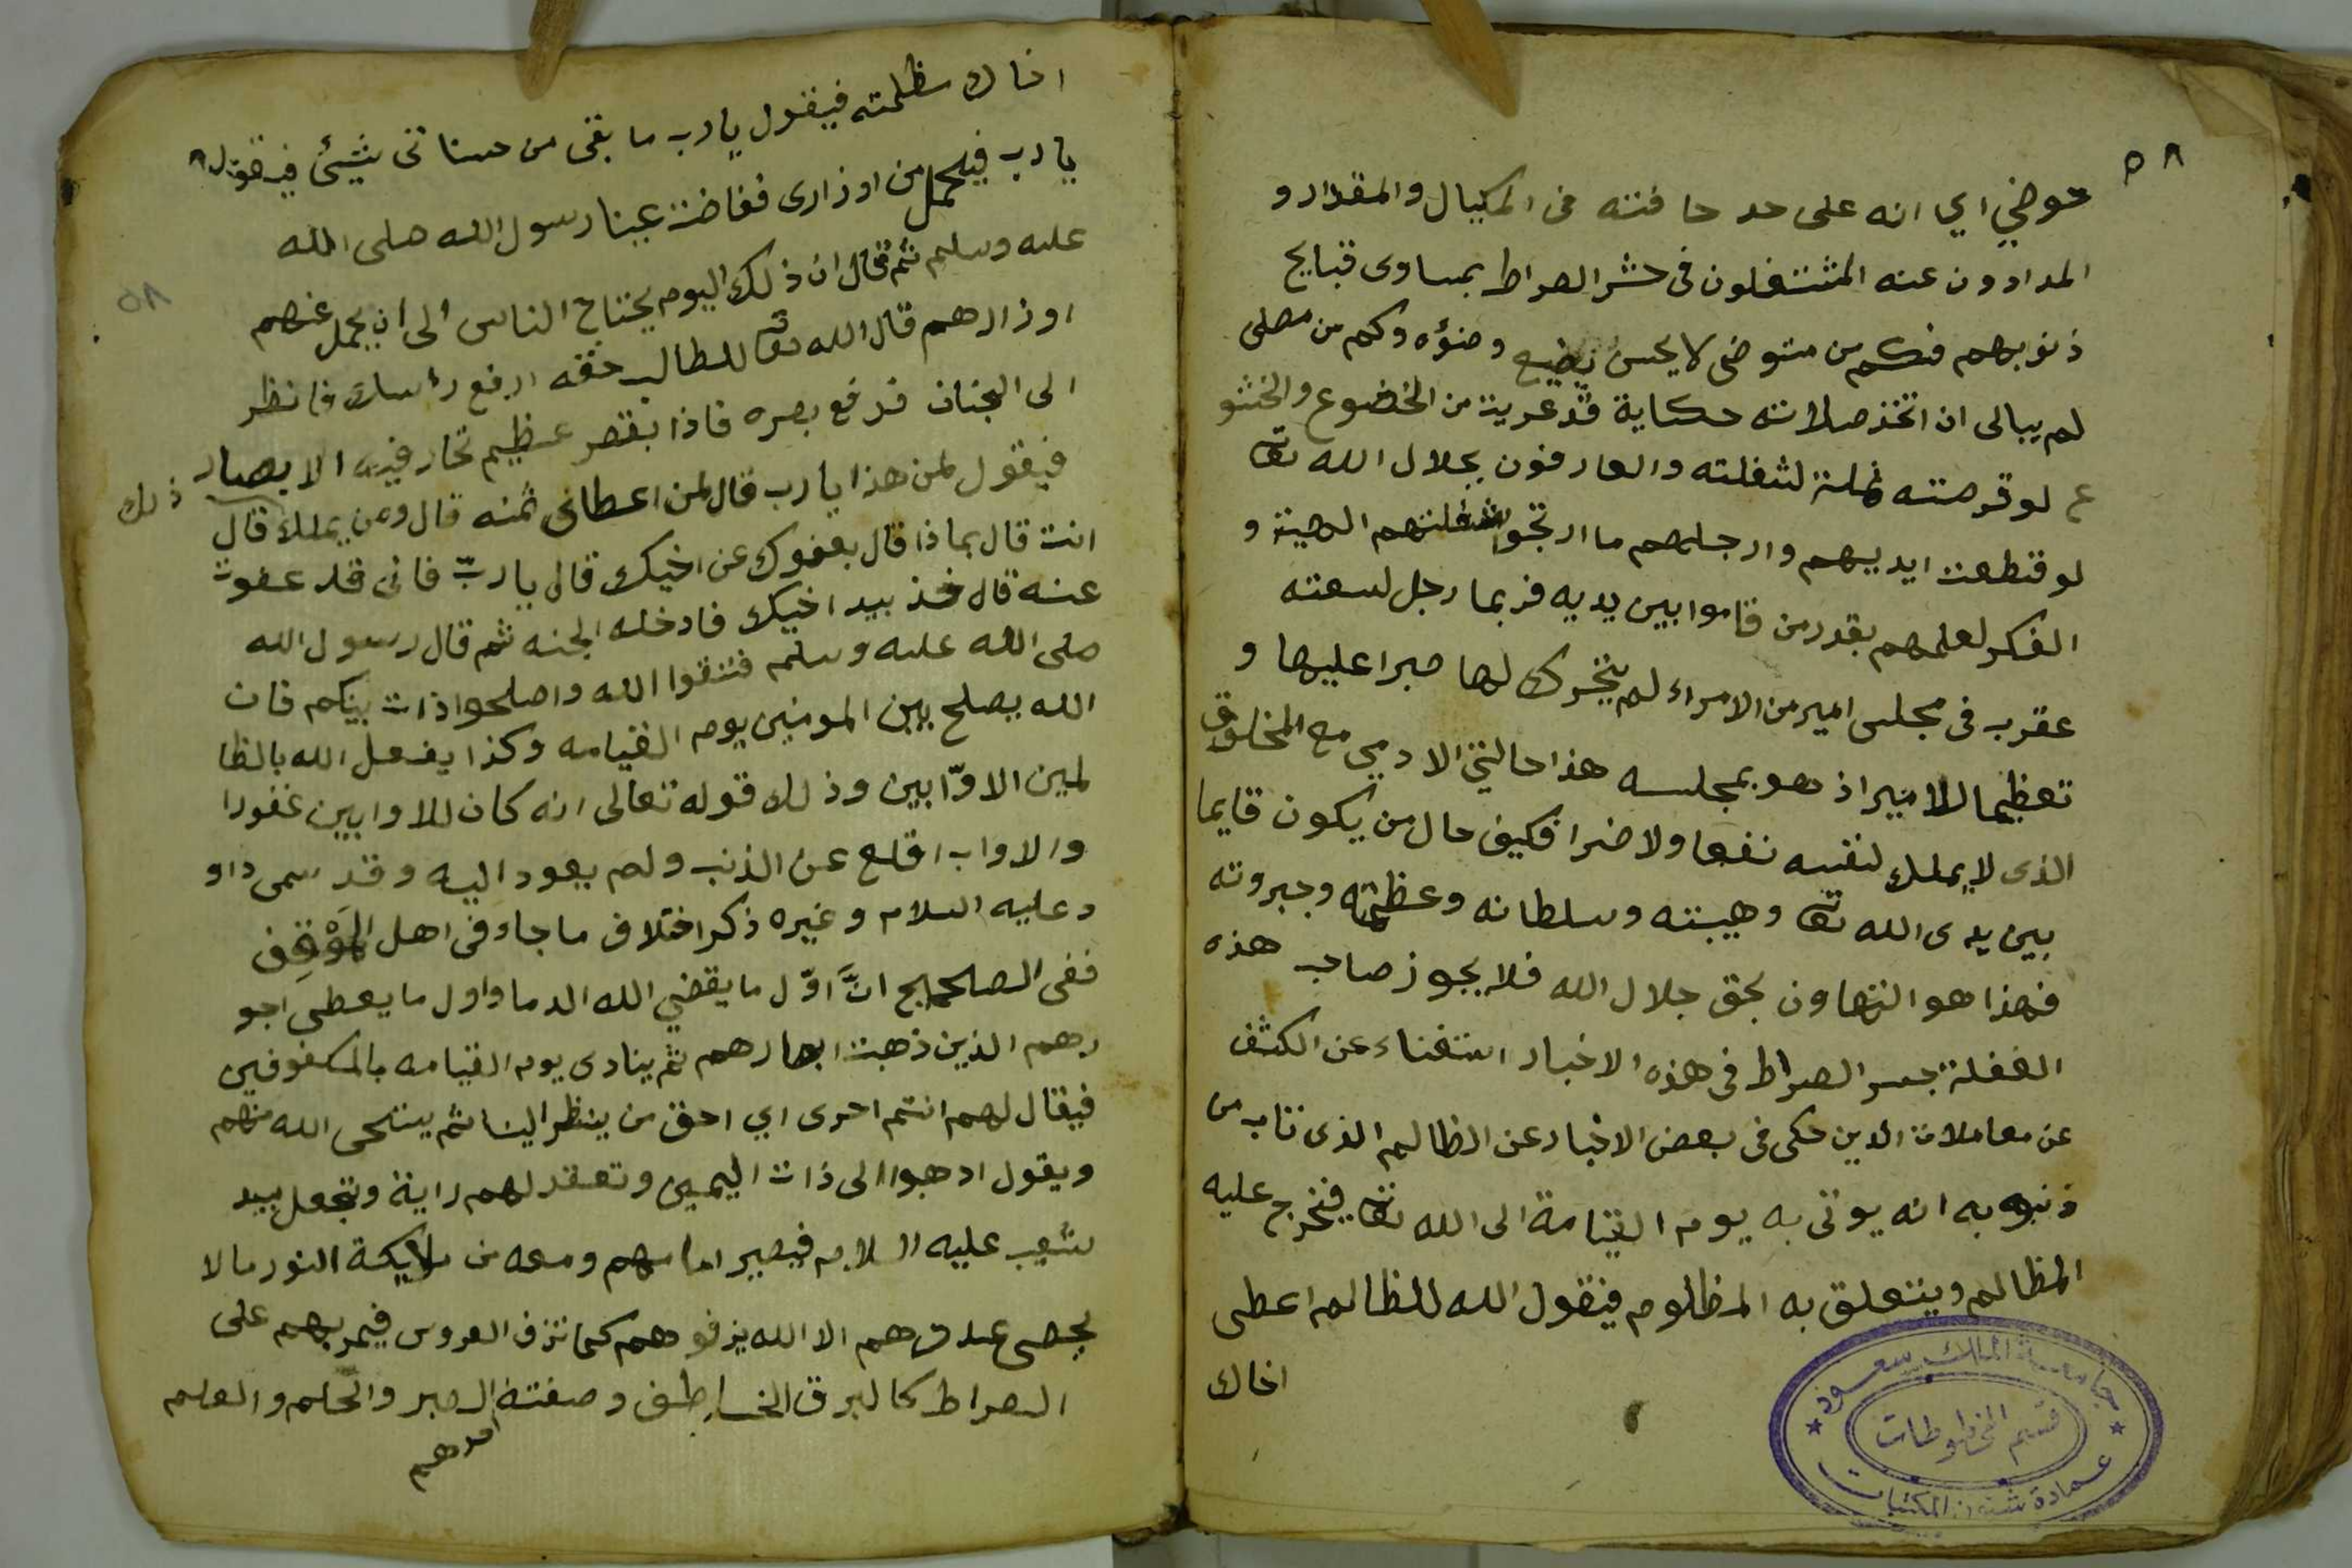 ٥٨
حوضي اي انه على حد حافته في المكيال والمقدار و
المدادون عنه المشتغلون في حشر الصراط بمساوى قبايح
ذنوبهم فكم من متوضى لا يحسن يضيع وضؤه وكم من مصلى
لم يبالى ان اتخذ صلاته حكاية قد عريت من الخضوع والخشو
ع لو قرصته نملة لشغلته والعارفون بجلال الله تعا
لو قطعت ايديهم وارجلهم ما ارتجوا لشغلتهم الهيبة و
الفكر لعلمهم بقدر من قاموا بين يديه فربما رجل لسعته
عقرب في مجلس امير من الامراء لم يتحرك لها صبرا عليها و
تعظيما للامير اذ هو بمجلسه هذا حالتى الادمي مع المخلوق
الذى لا يملك لنفسه نفعا ولا ضرا فكيف حال من يكون قايما
بين يدى الله تعا وهيبته وسلطانه وعظمته وجبروته
فهذا هو التهاون بحق جلال الله فلا يجوز صاحب هذه
الغفلة جسر الصراط في هذه الاخبار استغناء عن الكشف
عن معاملات الدين حكى في بعض الاخبار عن الظالم الذى تاب من
ذنوبه انه يوتى به يوم القيامة الى الله تعا فيخرج عليه
المظالم ويتعلق به المظلوم فيقول الله للظالم اعطى
اخاك
جامعة الملك سعود
قسم المخطوطات
عمادة شئون المكتبات
اخاك مظلمته فيقول يا رب ما بقى من حسناتى شيئ فيقول
يا رب فيلحمل من اوزارى ففاضت عينا رسول الله صلى الله
عليه وسلم ثم قال ان ذلك اليوم يحتاج الناس الى ان يحمل عنهم
اوزارهم قال الله تعا للطالب حقه ارفع رأسك فانظر
الى الجنان فرفع بصره فاذا بقصر عظيم تحار فيه الابصار
فيقول لمن هذا يا رب قال لمن اعطانى ثمنه قال ومن يملك ذلك قال
انت قال بماذا قال بعفوك عن اخيك قال يا ربّ فانى قد عفوت
عنه قال فخذ بيد اخيك فادخله الجنه ثم قال رسول الله
صلى الله عليه وسلم فتقوا الله واصلحوا ذات بينكم فان
الله يصلح بين المومنين يوم القيامه وكذا يفعل الله بالظا
لمين الاوّابين وذلك قوله تعالى انه كان للاوابين غفورا
والاواب اقلع عن الذنب ولم يعود اليه وقد سمى داو
د عليه السلام وغيره ذكر اختلاف ما جاء فى اهل الموقف
ففى الصحيح انّ اوّل ما يقضي الله الدما واول ما يعطى اجو
رهم الذين ذهبت ابصارهم ثم ينادى يوم القيامه بالمكفوفين
فيقال لهم انتم احرى اي احق من ينظر الينا ثم يستحى الله منهم
ويقول ادهبوا الى ذات اليمين وتعقد لهم راية وتجعل بيد
شعيب عليه السلام فيصير امامهم ومعه من ملايكة النور ما لا
يحصى عددهم الا الله يزفوهم كما تزف العروس فيمر بهم على
الصراط كالبرق الخاطف وصفته الصبر والحلم والعلم
٥٨